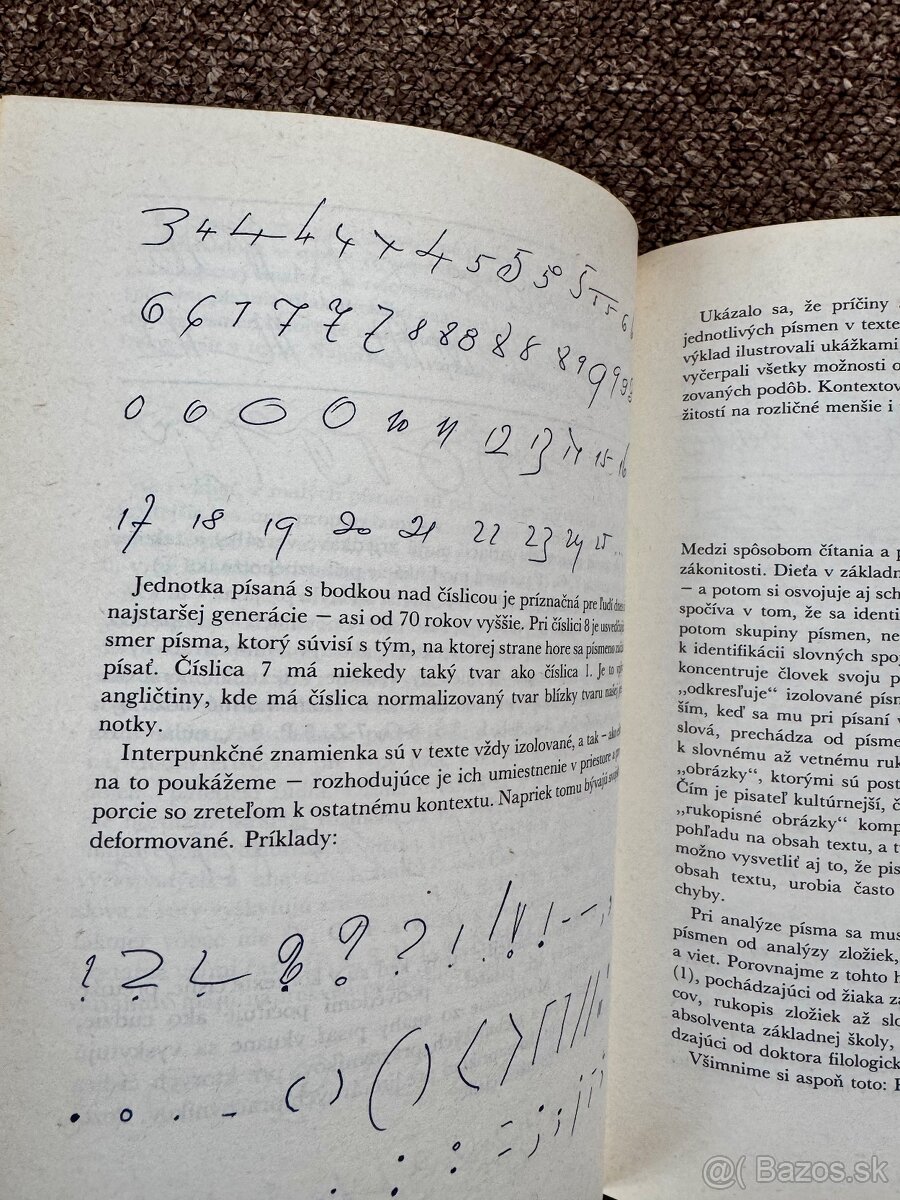 3 4 4 4 4 4 4 5 5 5 5 5 5 6
6 6 7 7 7 7 8 8 8 8 8 8 9 9 9 9
0 0 0 0 10 11 12 13 14 15 16
17 18 19 20 21 22 23 24 25 ...
Jednotka písaná s bodkou nad číslicou je príznačná pre ľudí
najstaršej generácie — asi od 70 rokov vyššie. Pri číslici 8 je
smer písma, ktorý súvisí s tým, na ktorej strane hore sa písmeno
písať. Číslica 7 má niekedy taký tvar ako číslica 1. Je to
angličtiny, kde má číslica normalizovaný tvar blízky tvaru našej
notky.
Interpunkčné znamienka sú v texte vždy izolované, a tak — ako
na to poukážeme — rozhodujúce je ich umiestnenie v priestore a
porcie so zreteľom k ostatnému kontextu. Napriek tomu bývajú
deformované. Príklady:
? ? ? ? ? ? ! ! ! ! — —
. . . – ( ) ( ) ( )
Ukázalo sa, že príčiny
jednotlivých písmen v texte
výklad ilustrovali ukážkami
vyčerpali všetky možnosti
zovaných podôb.
žitostí na rozličné menšie i
Medzi spôsobom čítania a
zákonitosti. Dieťa v
— a potom si osvojuje aj
spočíva v tom, že sa
potom skupiny písmen,
k identifikácii slovných
koncentruje človek svoju
„odkresľuje“ izolované
ším, keď sa mu pri písaní
slová, prechádza od
k slovnému až vetnému
„obrázky“, ktorými sú
Čím je pisateľ kultúrnejší,
„rukopisné obrázky“
pohľadu na obsah textu, a
možno vysvetliť aj to, že
obsah textu, urobia často
chyby.
Pri analýze písma sa
písmen od analýzy zložiek,
a viet. Porovnajme z tohto
(1), pochádzajúci od žiaka
cov, rukopis zložiek až
absolventa základnej školy,
dzajúci od doktora
Všimnime si aspoň toto:
@( Bazos.sk